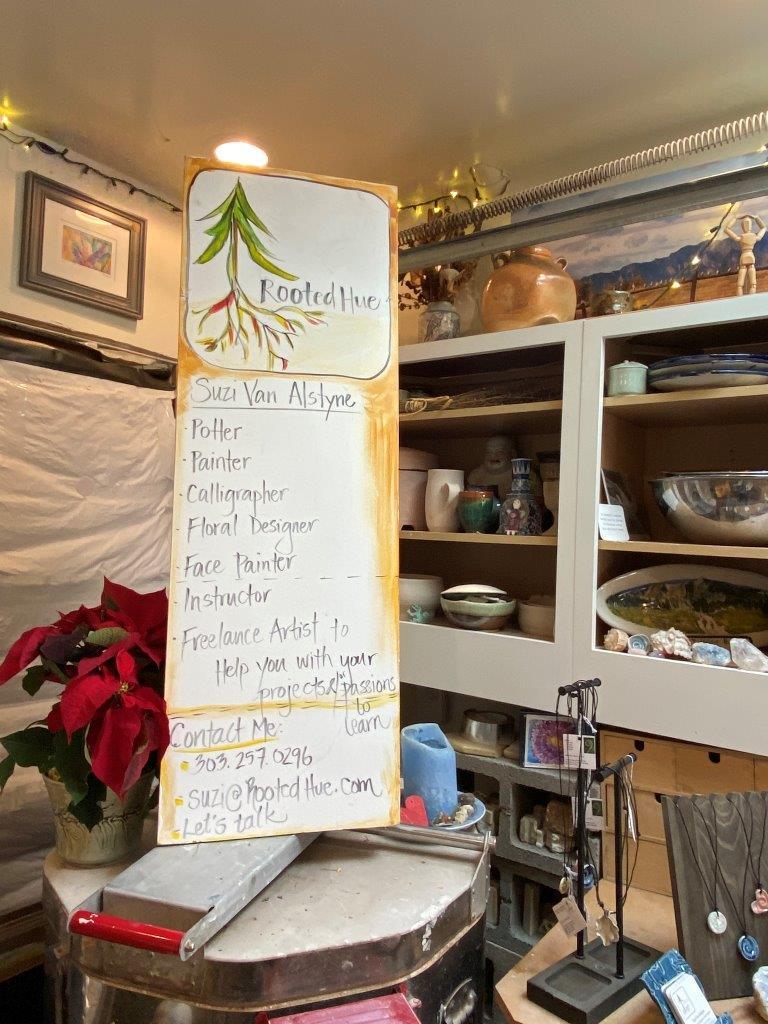 Rooted Hue
Suzi Van Alstyne
· Potter
· Painter
· Calligrapher
· Floral Designer
· Face Painter
· Instructor
· Freelance Artist to
Help you with your
projects & "passions
to
learn
Contact Me:
· 303.257.0296
· suzi@RootedHue.com
· Let's talk